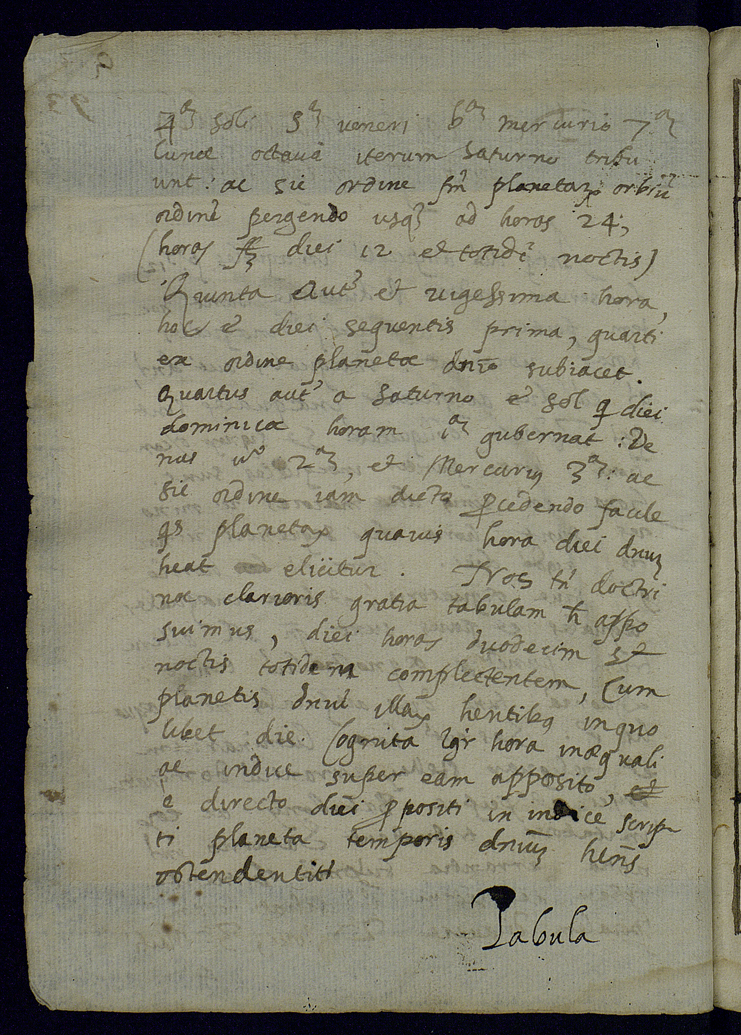 4ᵃᵐ soli 5ᵃᵐ veneri 6ᵃᵐ mercurio 7ᵃᵐ
lunæ octauā iterum Saturno tribu
unt: ac sic ordine planetaꝝ orbiū
ordinē pergendo usqꝫ ad horas 24,
(horas diei 12 et totidē noctis)
Quinta autē et uigessima hora,
hoc ē diei sequentis prima, quarti
ex ordine planetæ dn̄io subiacet.
Quartus autē a Saturno ē sol q̄ diei
dominicæ horam 1ᵃᵐ gubernat: Ve
nus uᵒ 2ᵃᵐ, et Mercuriꝰ 3ᵃᵐ: ac
sic ordine iam dicto ꝓcedendo facile
planetaꝝ quauis hora diei dn̄iuꝫ
heat elicitur. Nos tn̄ doctri
næ clarioris gratia tabulam appo
suimus, diei horas duodecim et
noctis totidem complectentem, Cum
planetis dn̄iū illaꝝ hentibꝫ in quo
libet die. Cognita igr̄ hora inæquali
ac indice super eam apposito, et
e directo diei ꝓpositi in indice scrip
ti planeta temporis dn̄iuꝫ hēns
Tabula